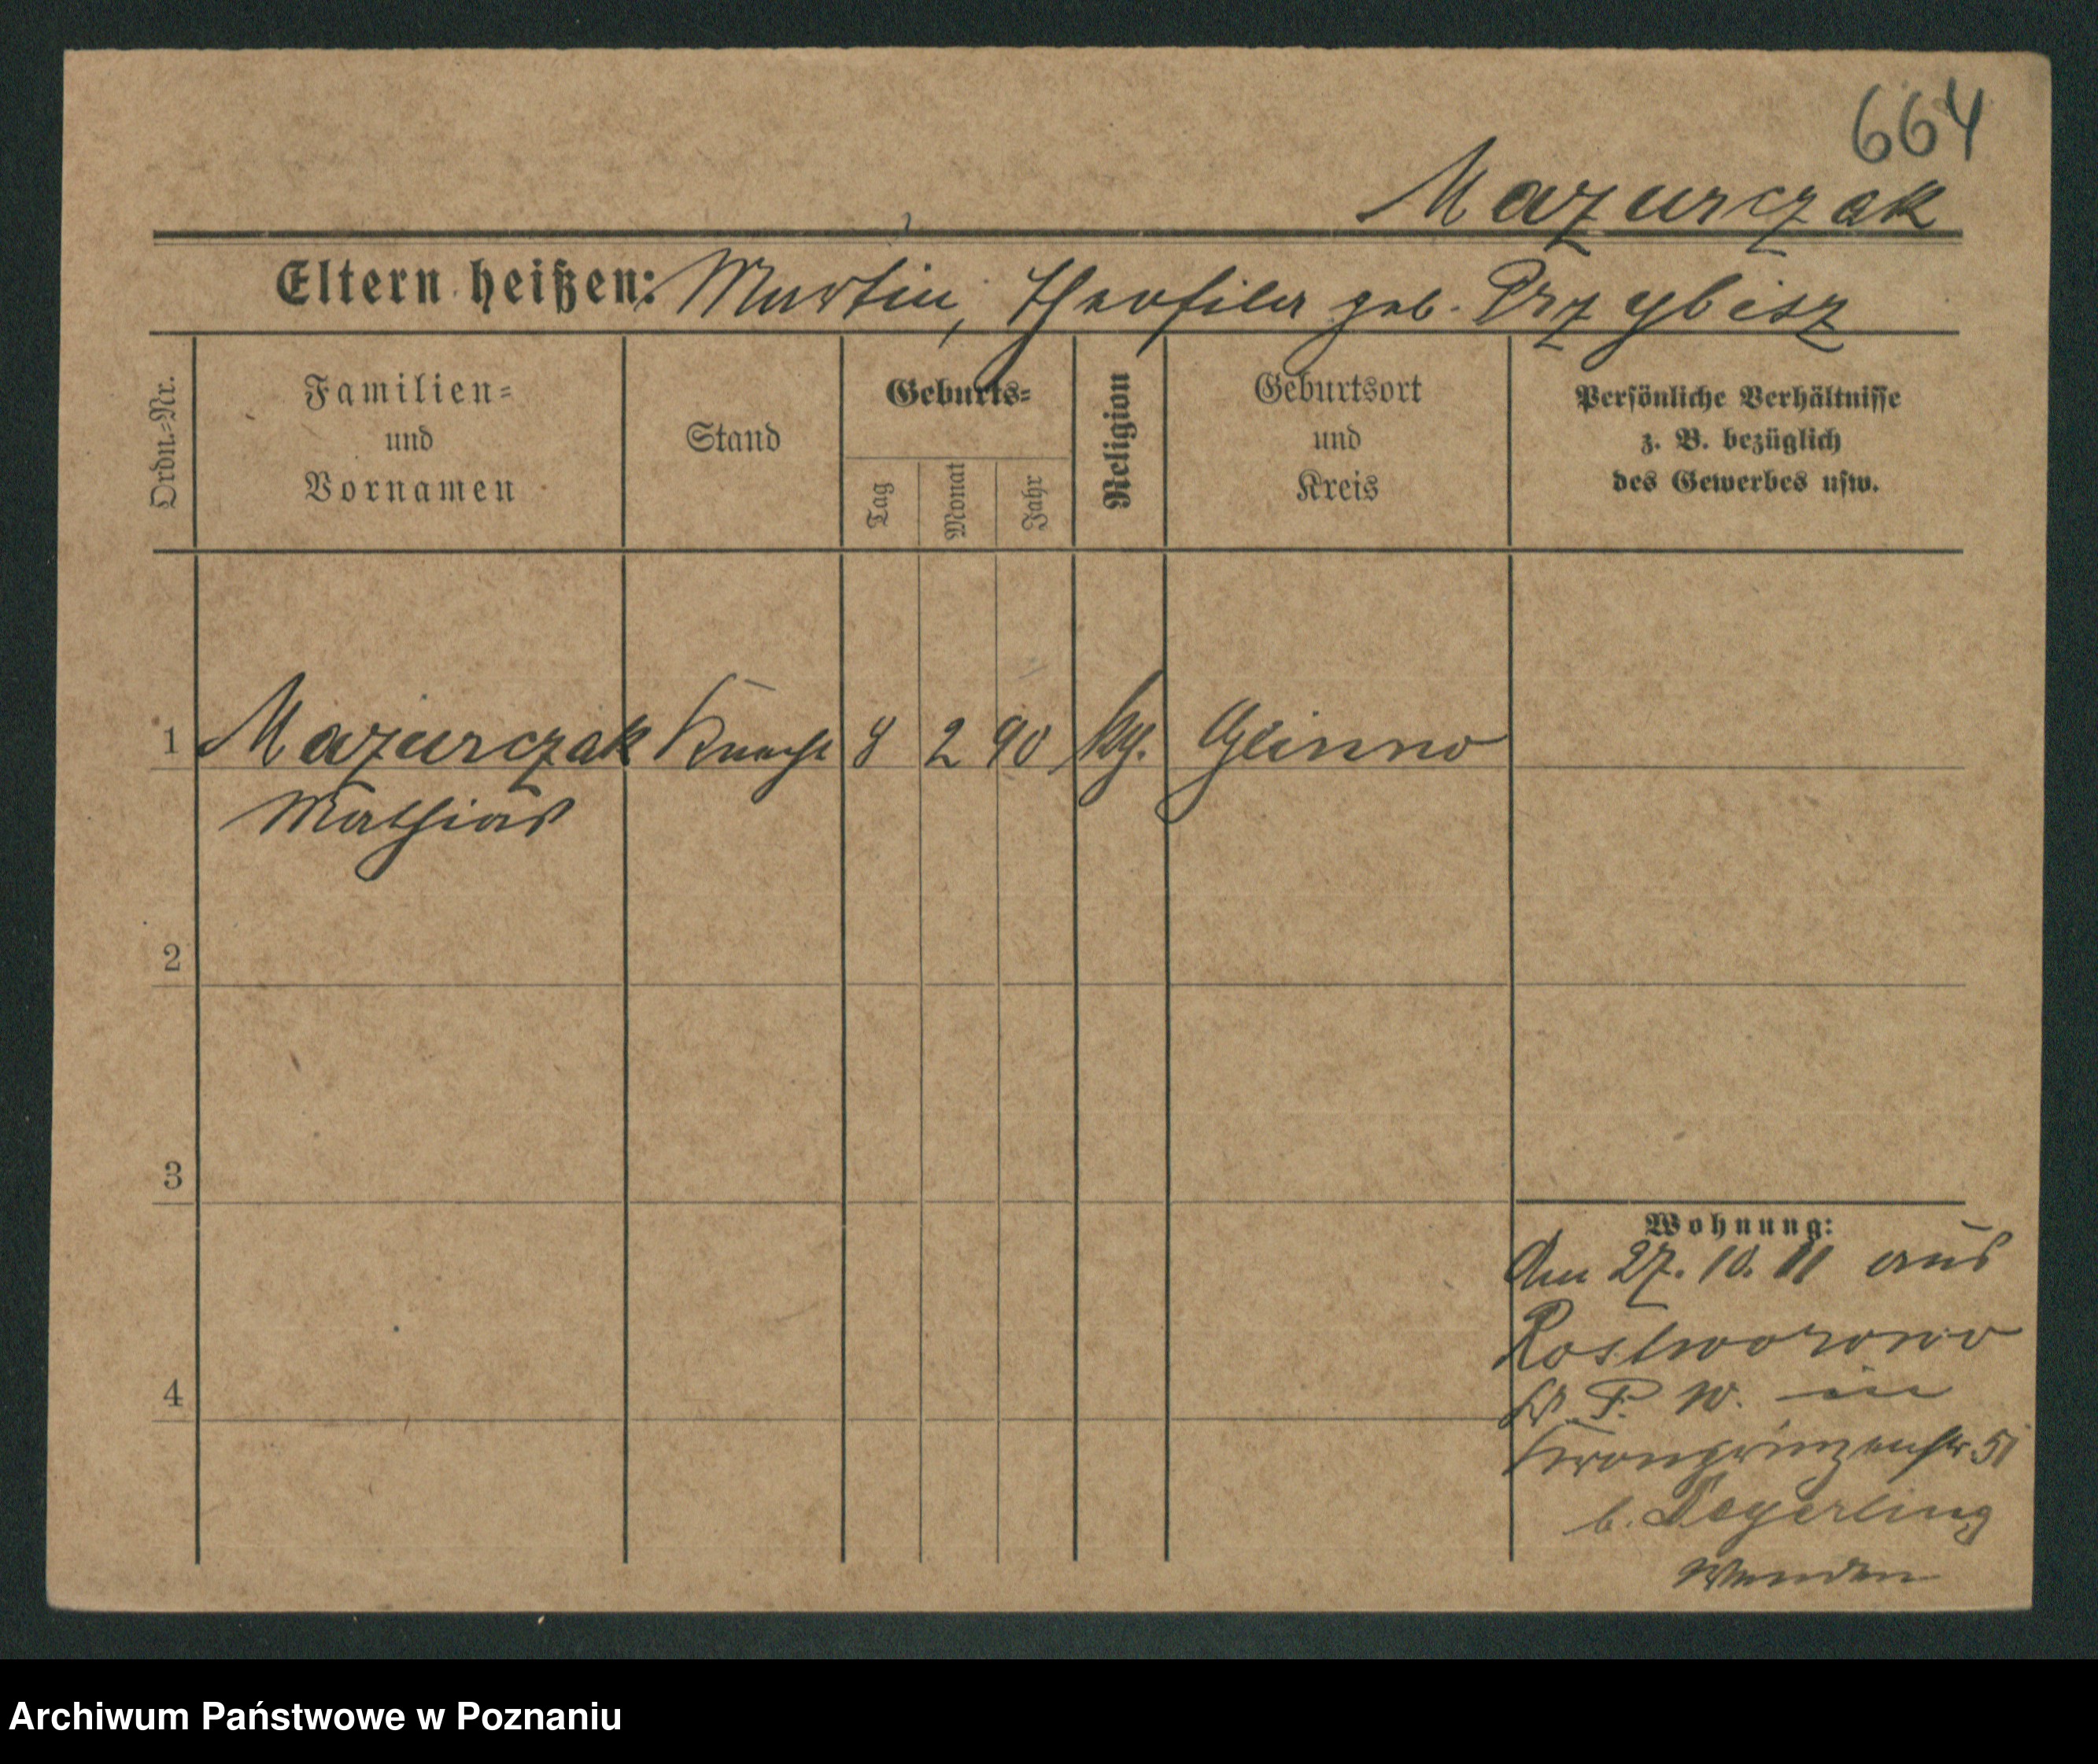 664
Mazurczak
Eltern heißen: Martin, Theofila geb. Przybisz
Ordn.-Nr.
Familien-
und
Vornamen
Stand
Geburts-
Tag
Monat
Jahr
Religion
Geburtsort
und
Kreis
Persönliche Verhältnisse
z. B. bezüglich
des Gewerbes usw.
1 Mazurczak Knecht 8 2 90 kg. Glinno
Mathias
2
3
4
Wohnung:
Am 27. 10. 11 aus
Rostworowo
Kr. P. W. in
Kronprinzenstr 51
b. Degerling
Wenden
Archiwum Państwowe w Poznaniu